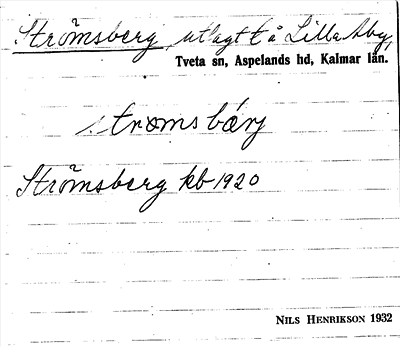 Strömsberg, utlagt t å Lilla Aby,
Tveta sn, Aspelands hd, Kalmar län.
strömsbärj
Strömsberg kb 1920
NILS HENRIKSON 1932